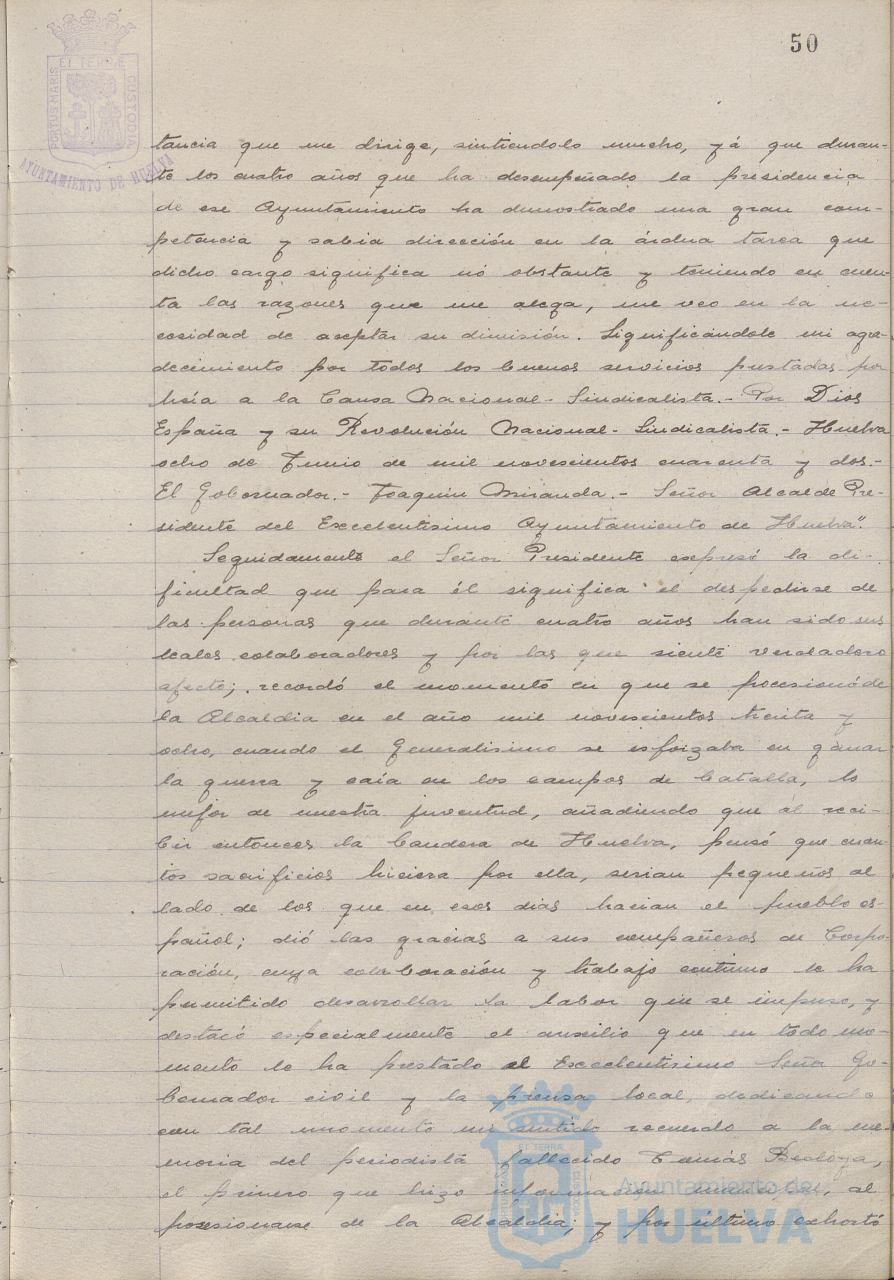 50
PORTUS MARIS ET TERRÆ CUSTODIA
AYUNTAMIENTO DE HUELVA
tancia que me dirige, sintiendolo mucho, yá que duran-
te los cuatro años que ha desempeñado la presidencia
de ese Ayuntamiento ha demostrado una gran com-
petencia y sabia dirección en la árdua tarea que
dicho cargo significa nó obstante y teniendo en cuen-
ta las razones que me alega, me veo en la ne-
cesidad de aceptar su dimisión. Significándole mi agra-
decimiento por todos los buenos servicios prestados por
hsía a la Causa Nacional-Sindicalista.- Por Dios
España y su Revolución Nacional-Sindicalista.- Huelva
ocho de Junio de mil novescientos cuarenta y dos.-
El Gobernador.- Joaquin Miranda.- Señor Alcalde Pre-
sidente del Excelentisimo Ayuntamiento de Huelva".
Seguidamente el Señor Presidente expresó la di-
ficultad que para él significa el despedirse de
las personas que durante cuatro años han sido sus
leales colaboradores y por las que siente verdadero
afecto; recordó el momento en que se posesionó de
la Alcaldia en el año mil novescientos treita y
ocho, cuando el Generalisimo se esforzaba en ganar
la guerra y caía en los campos de batalla, lo
mejor de nuestra juventud, añadiendo que al reci-
bir entonces la bandera de Huelva, pensó que cuan-
tos sacrificios hiciera por ella, serian pequeños al
lado de los que en esos dias hacian el pueblo es-
pañol; dió las gracias a sus compañeros de Corpo-
ración, cuya colaboración y trabajo continuo le ha
permitido desarrollar la labor que se impuso, y
destacó especialmente el auxilio que en todo mo-
mento le ha prestado el Excelentisimo Señor Go-
bernador civil y la prensa local, dedicando
con tal momento un sentido recuerdo a la me-
moria del periodista fallecido Tomás
el primero que hizo información municipal, al
posesionarse de la Alcaldia; y por último exhortó
Ayuntamiento de
HUELVA